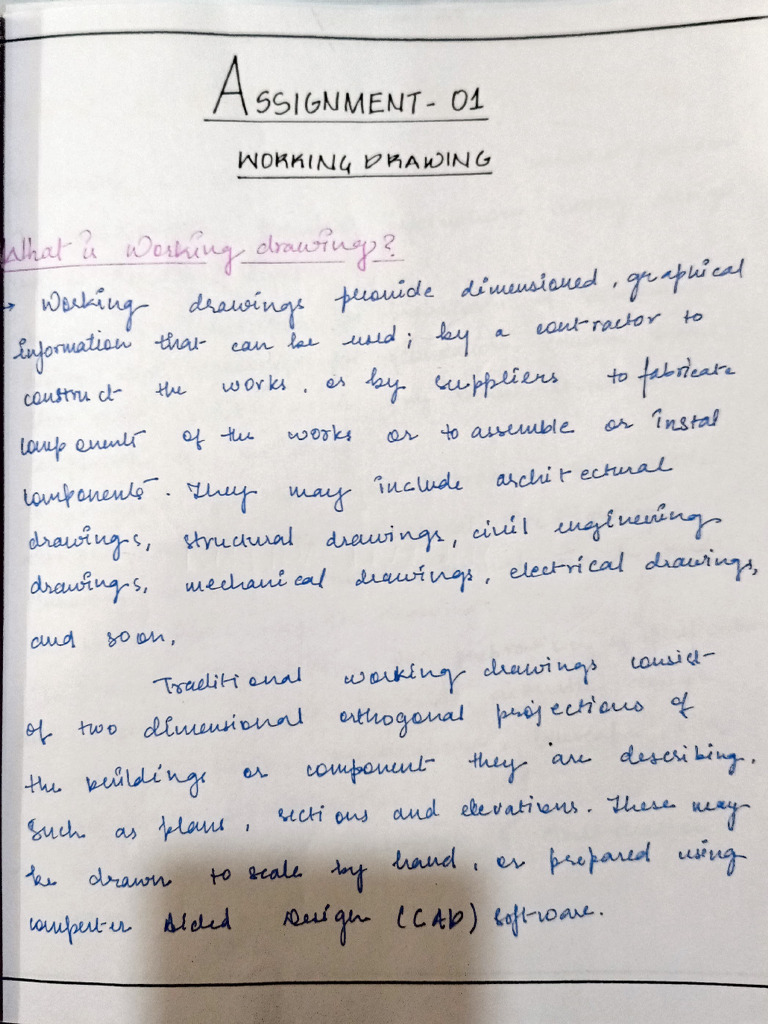 ASSIGNMENT- 01
WORKING DRAWING
What is Working drawing?
→ Working drawings provide dimensioned, graphical
information that can be used; by a contractor to
construct the works, or by suppliers to fabricate
components of the works or to assemble or instal
components. They may include architectural
drawings, structural drawings, civil engineering
drawings, mechanical drawings, electrical drawings,
and soon.
Traditional working drawings consist
of two dimensional orthogonal projections of
the buildings or component they are describing.
Such as plans, sections and elevations. These may
be drawn to scale by hand, or prepared using
computer Aided Design (CAD) software.